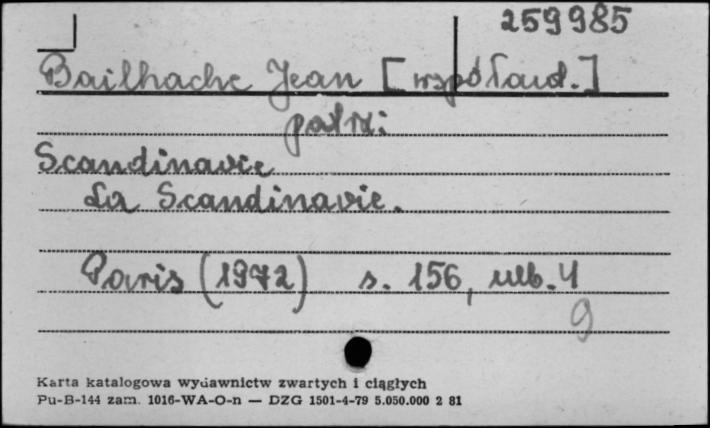 259985
Bailhache Jean [współaut.]
patrz:
Scandinavie
La Scandinavie.
Paris (1972) s. 156, nlb. 4
9
Karta katalogowa wydawnictw zwartych i ciągłych
Pu-B-144 zam. 1016-WA-O-n — DZG 1501-4-79 5.050.000 2 81